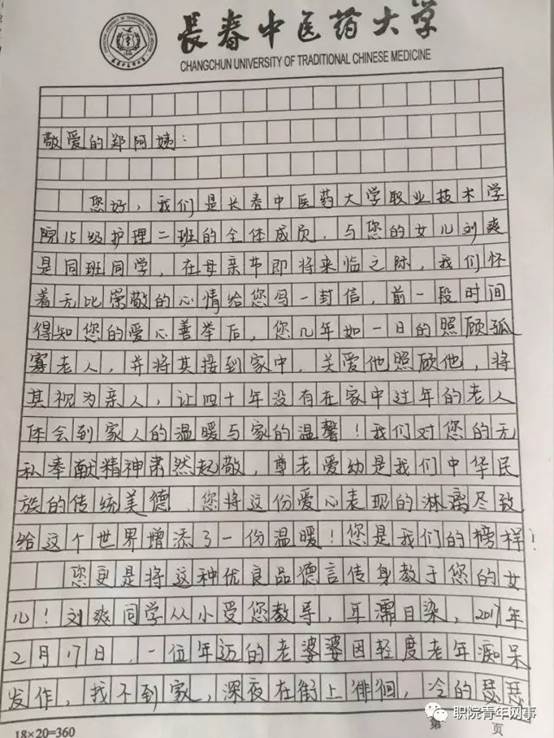 长春中医药大学
CHANGCHUN UNIVERSITY OF TRADITIONAL CHINESE MEDICINE
敬爱的郑阿姨:
您好,我们是长春中医药大学职业技术学
院15级护理二班的全体成员,与您的女儿刘爽
是同班同学,在母亲节即将来临之际,我们怀
着无比崇敬的心情给您写一封信,前一段时间
得知您的爱心善举后,您几年如一日的照顾孤
寡老人,并将其接到家中,关爱他照顾他,将
其视为亲人,让四十年没有在家中过年的老人
体会到家人的温暖与家的温馨!我们对您的无
私奉献精神肃然起敬,尊老爱幼是我们中华民
族的传统美德,您将这份爱心表现的淋漓尽致
给这个世界增添了一份温暖!您是我们的榜样!
您更是将这种优良品德言传身教于您的女
儿!刘爽同学从小受您教导,耳濡目染,2017年
2月17日,一位年迈的老婆婆因轻度老年痴呆
发作,找不到家,深夜在街上徘徊,冷的瑟瑟
18×20=360
第 页
职院青年网事